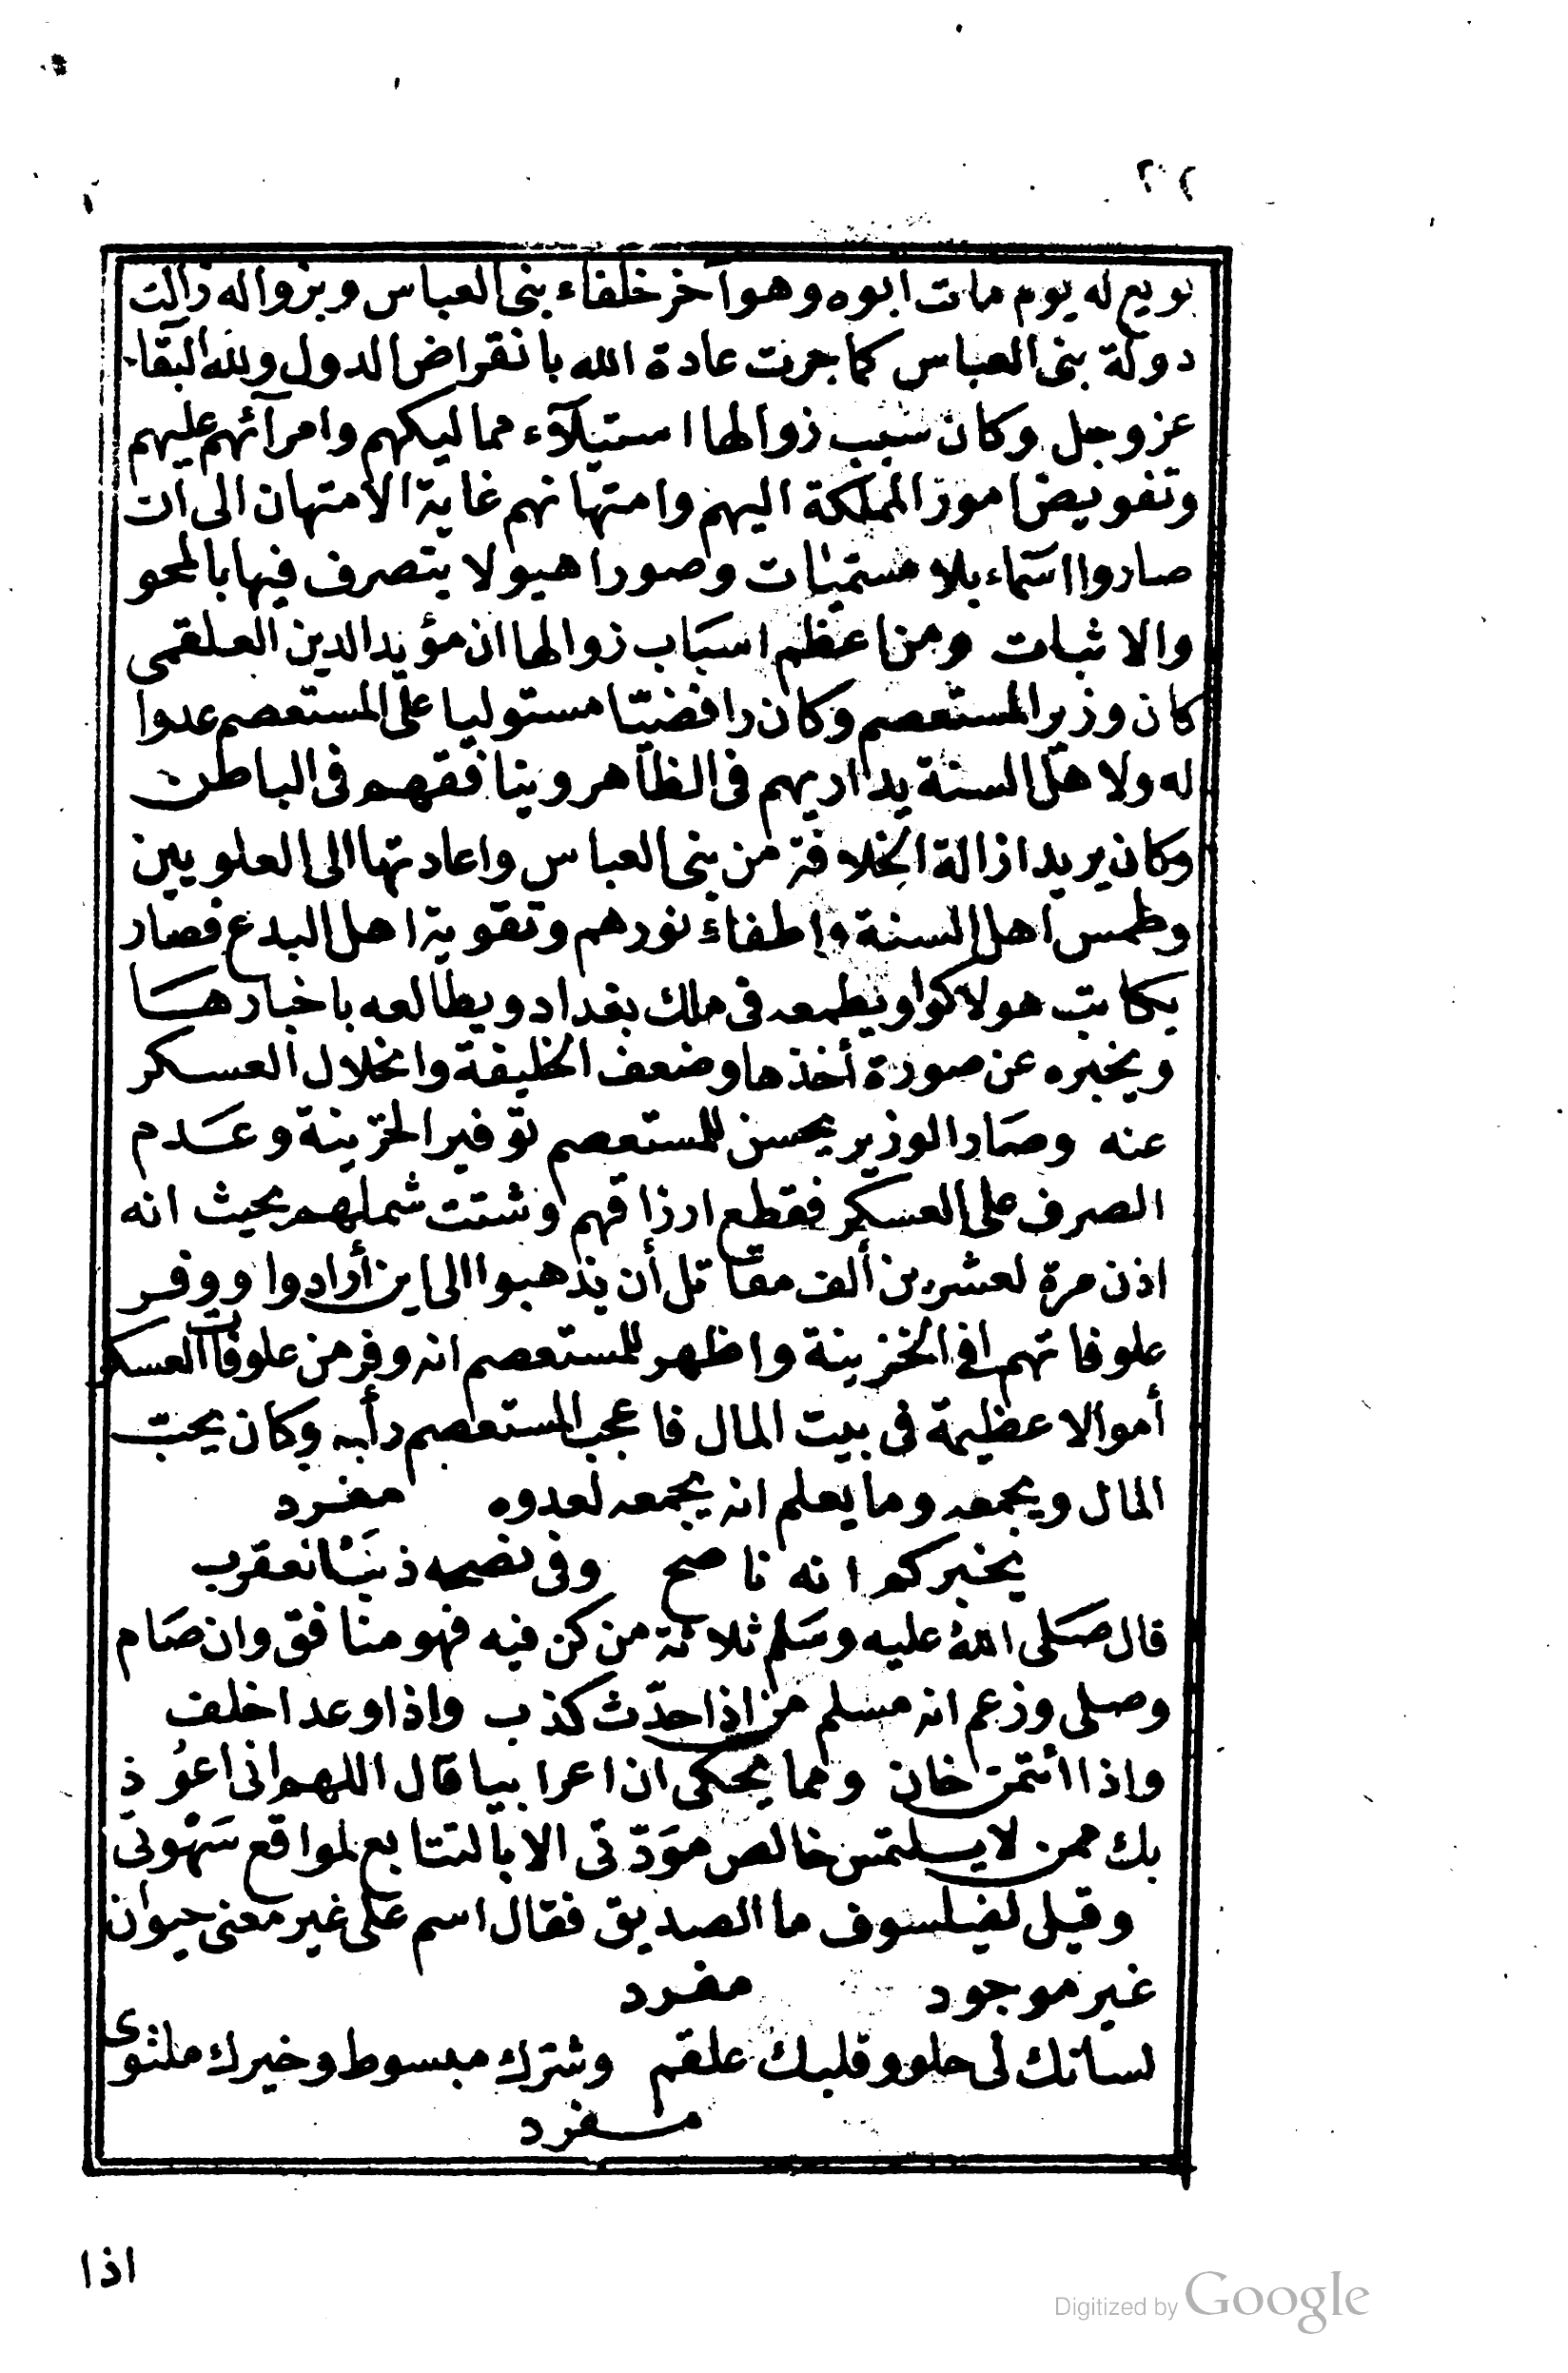 بويع له يوم مات ابوه وهو آخر خلفاء بنى العباس وبزواله زالت
دولة بنى العباس كما جرت عادة الله بانقراض الدول ولله البقاء
عز وجل وكان سبب زوالها استيلآء مماليكهم وامرآئهم عليهم
وتفويض امور المملكة اليهم وامتهانهم غاية الامتهان الى ان
صاروا اسماء بلا مسمّيات وصورا هيولا يتصرف فيها بالمحو
والاثبات ومن اعظم اسباب زوالها ان مؤيد الدين العلقمى
كان وزير المستعصم وكان رافضيّا مستوليا على المستعصم عدوا
له ولاهل السنة يداريهم فى الظاهر وينافقهم فى الباطن
وكان يريد ازالة الخلافة من بنى العباس واعادتها الى العلويين
وطمس اهل السنة واطفاء نورهم وتقوية اهل البدع فصار
يكاتب هولاكوا ويطمعه فى ملك بغداد ويطالعه باخبارها
ويخبره عن صورة أخذها وضعف الخليفة وانحلال العسكر
عنه وصار الوزير يحسن للمستعصم توفير الخزينة وعدم
الصرف على العسكر فقطع ارزاقهم وشتت شملهم بحيث انه
اذن مرة لعشرين ألف مقاتل أن يذهبوا الى اين أرادوا ووفر
علوفاتهم فى الخزينة واظهر للمستعصم انه وفر من علوفات العسكر
أموالا عظيمة فى بيت المال فاعجب المستعصم رأيه وكان يحبّ
المال ويجمعه وما يعلم انه يجمعه لعدوه مفرد
يخبركم انه ناصح وفى نصحه ذنب العقرب
قال صلى الله عليه وسلم ثلاثة من كن فيه فهو منافق وان صام
وصلى وزعم انه مسلم من اذا حدّث كذب واذا وعد اخلف
واذا ائتمن خان ومما يحكى ان اعرابيا قال اللهم انى اعوذ
بك ممن لا يلتمس خالص مودّتى الا بالتتابع لمواقع شهوتى
وقيل لفيلسوف ما الصديق فقال اسم على غير معنى حيوان
غير موجود مفرد
لسانك لى حلو وقلبك علقم وشرّك مبسوط وخيرك ملتوى
مفرد
اذا
Digitized by Google